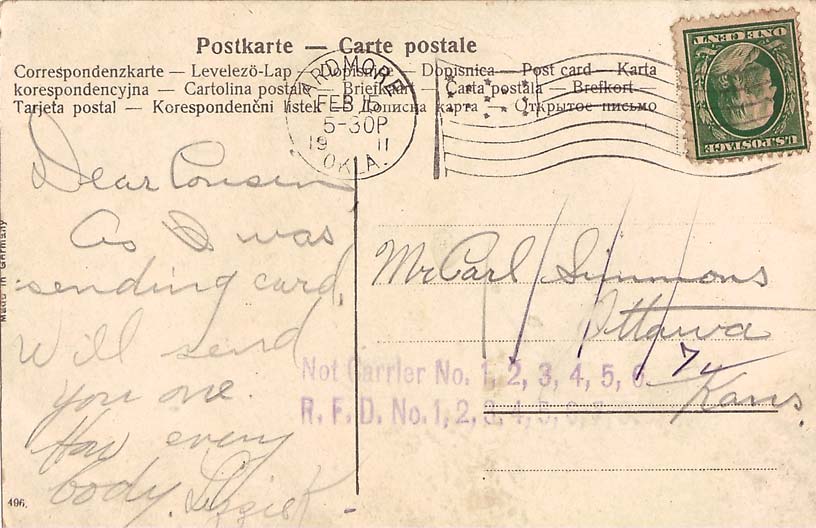 Postkarte — Carte postale
Correspondenzkarte — Levelező-Lap — Dopisnice — Dopisnica — Post card — Karta
korespondencyjna — Cartolina postale — Briefkaart — Carta postala — Brefkort —
Tarjeta postal — Korespondenční lístek — Дописна карта — Открытое письмо
ARDMORE
FEB 15
5-30P
19 11
OKLA.
ONE CENT
U.S. POSTAGE
Dear Cousin
As I was
sending card,
Will send
you one.
How every
body. Lizzie
Mr Carl Simmons
Ottawa
Kans.
Not Carrier No. 1, 2, 3, 4, 5, 6
R. F. D. No. 1, 2, 3, 4, 5, 6, 7,
Made in Germany
496.